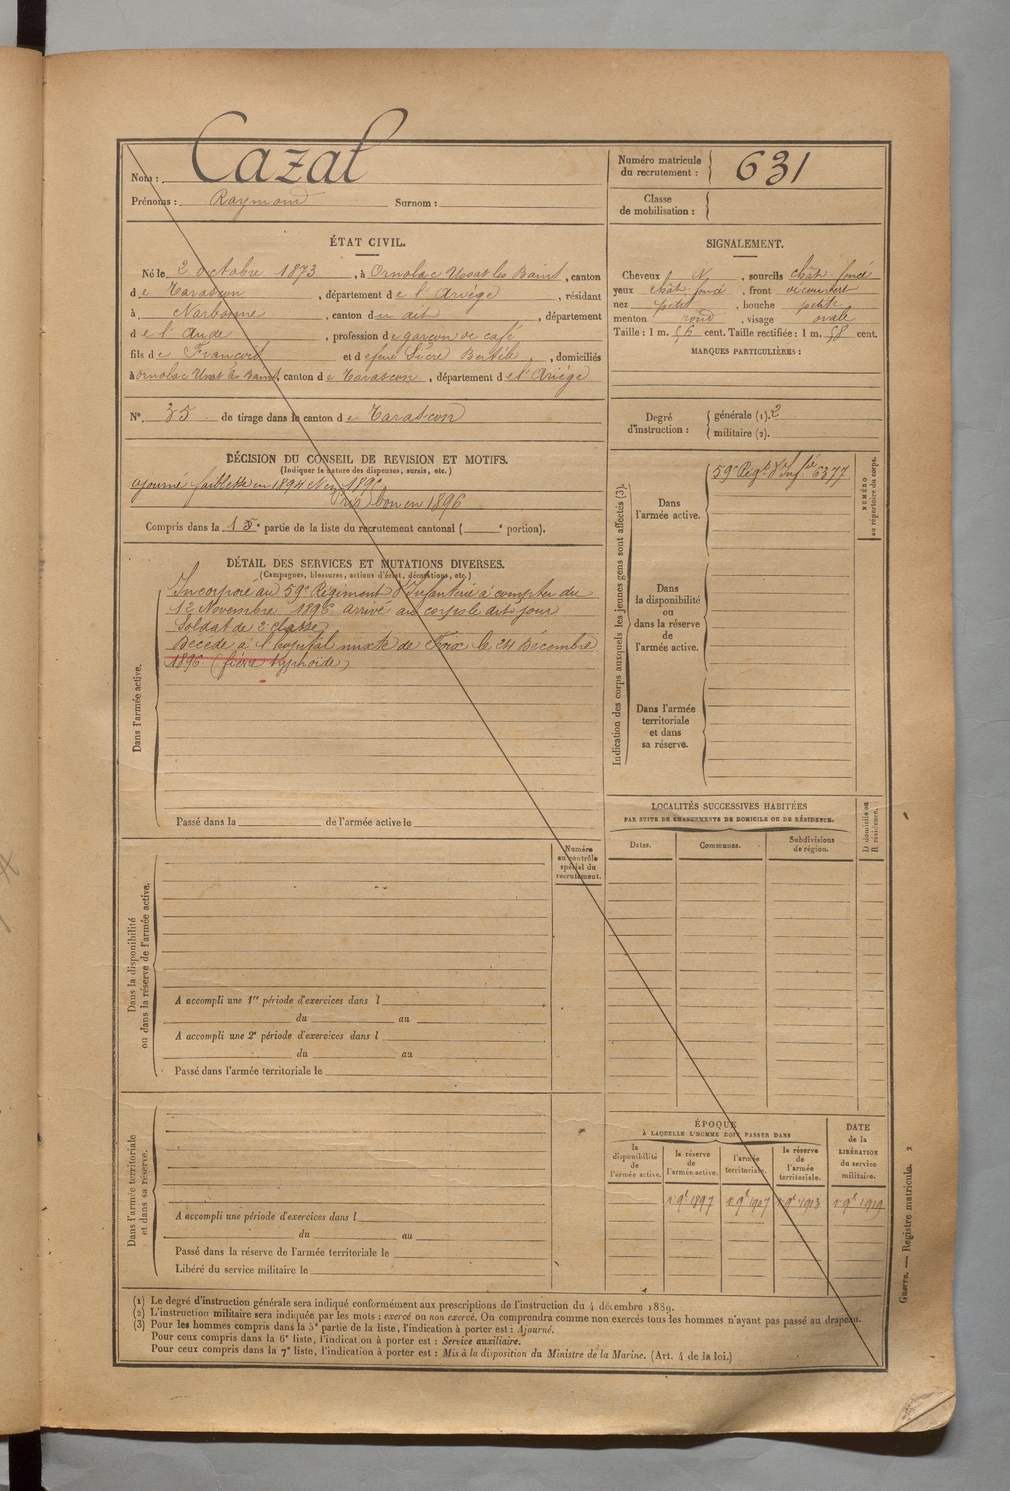 Nom : Cazal
Prénoms : Raymond Surnom :
Numéro matricule
du recrutement : 631
Classe
de mobilisation :
ÉTAT CIVIL.
Né le 2 octobre 1873, à Ornolac Ussat les Bains, canton
de Tarascon, département de l'Ariège, résidant
à Narbonne, canton du dit, département
de l'Aude, profession de garçon de café
fils de François et de feue Bertile, domiciliés
à Ornolac Ussat les Bains, canton de Tarascon, département de l'Ariège
N° 35 de tirage dans le canton de Tarascon
SIGNALEMENT.
Cheveux N, sourcils chât-foncé
yeux chât-foncé, front découvert
nez petit, bouche petite
menton rond, visage ovale
Taille : 1 m. 56 cent. Taille rectifiée : 1 m. 58 cent.
MARQUES PARTICULIÈRES :
Degré
d'instruction :
générale (1). 2
militaire (2).
DÉCISION DU CONSEIL DE REVISION ET MOTIFS.
(Indiquer la nature des dispenses, sursis, etc.)
ajourné faiblesse en 1894 et en 1895
bon en 1896
Compris dans la e partie de la liste du recrutement cantonal ( e portion).
DÉTAIL DES SERVICES ET MUTATIONS DIVERSES.
(Campagnes, blessures, actions d'éclat, décorations, etc.)
Dans l'armée active.
Incorporé au 59e Régiment d'Infanterie à compter du
12 Novembre 1896 arrivé au corps le dit jour
Soldat de 2e classe
Décédé à l'hôpital mixte de Foix le 24 Décembre
1896 (fièvre typhoïde)
Passé dans la de l'armée active le
Indication des corps auxquels les jeunes gens sont affectés (3).
Dans
l'armée active.
59e Régt d'Infie 6377
NUMÉRO
au répertoire du corps.
Dans
la disponibilité
ou dans
la réserve
de
l'armée active.
Dans l'armée
territoriale
et dans
sa réserve.
LOCALITÉS SUCCESSIVES HABITÉES
PAR SUITE DE CHANGEMENTS DE DOMICILE OU DE RÉSIDENCE.
Dates.
Communes.
Subdivisions
de région.
D domicile ou
R résidence.
Dans la disponibilité
ou dans la réserve de l'armée active.
Numéro
au contrôle
spécial du
recrutement.
A accompli une 1re période d'exercices dans l
du au
A accompli une 2e période d'exercices dans l
du au
Passé dans l'armée territoriale le
Dans l'armée territoriale
et dans sa réserve.
A accompli une période d'exercices dans l
du au
Passé dans la réserve de l'armée territoriale le
Libéré du service militaire le
ÉPOQUE
À LAQUELLE L'HOMME DOIT PASSER DANS
la
disponibilité
de
l'armée active.
la réserve
de
l'armée active.
l'armée
territoriale.
la réserve
de
l'armée
territoriale.
DATE
de la
LIBÉRATION
du service
militaire.
1 9e 1897 1 9e 1907 1 9e 1913 1 9e 1919
Guerre. — Registre matricule. 2
(1) Le degré d'instruction générale sera indiqué conformément aux prescriptions de l'instruction du 4 décembre 1889.
(2) L'instruction militaire sera indiquée par les mots : exercé ou non exercé. On comprendra comme non exercés tous les hommes n'ayant pas passé au drapeau.
(3) Pour les hommes compris dans la 5e partie de la liste, l'indication à porter est : Ajourné.
Pour ceux compris dans la 6e liste, l'indication à porter est : Service auxiliaire.
Pour ceux compris dans la 7e liste, l'indication à porter est : Mis à la disposition du Ministre de la Marine. (Art. 4 de la loi.)